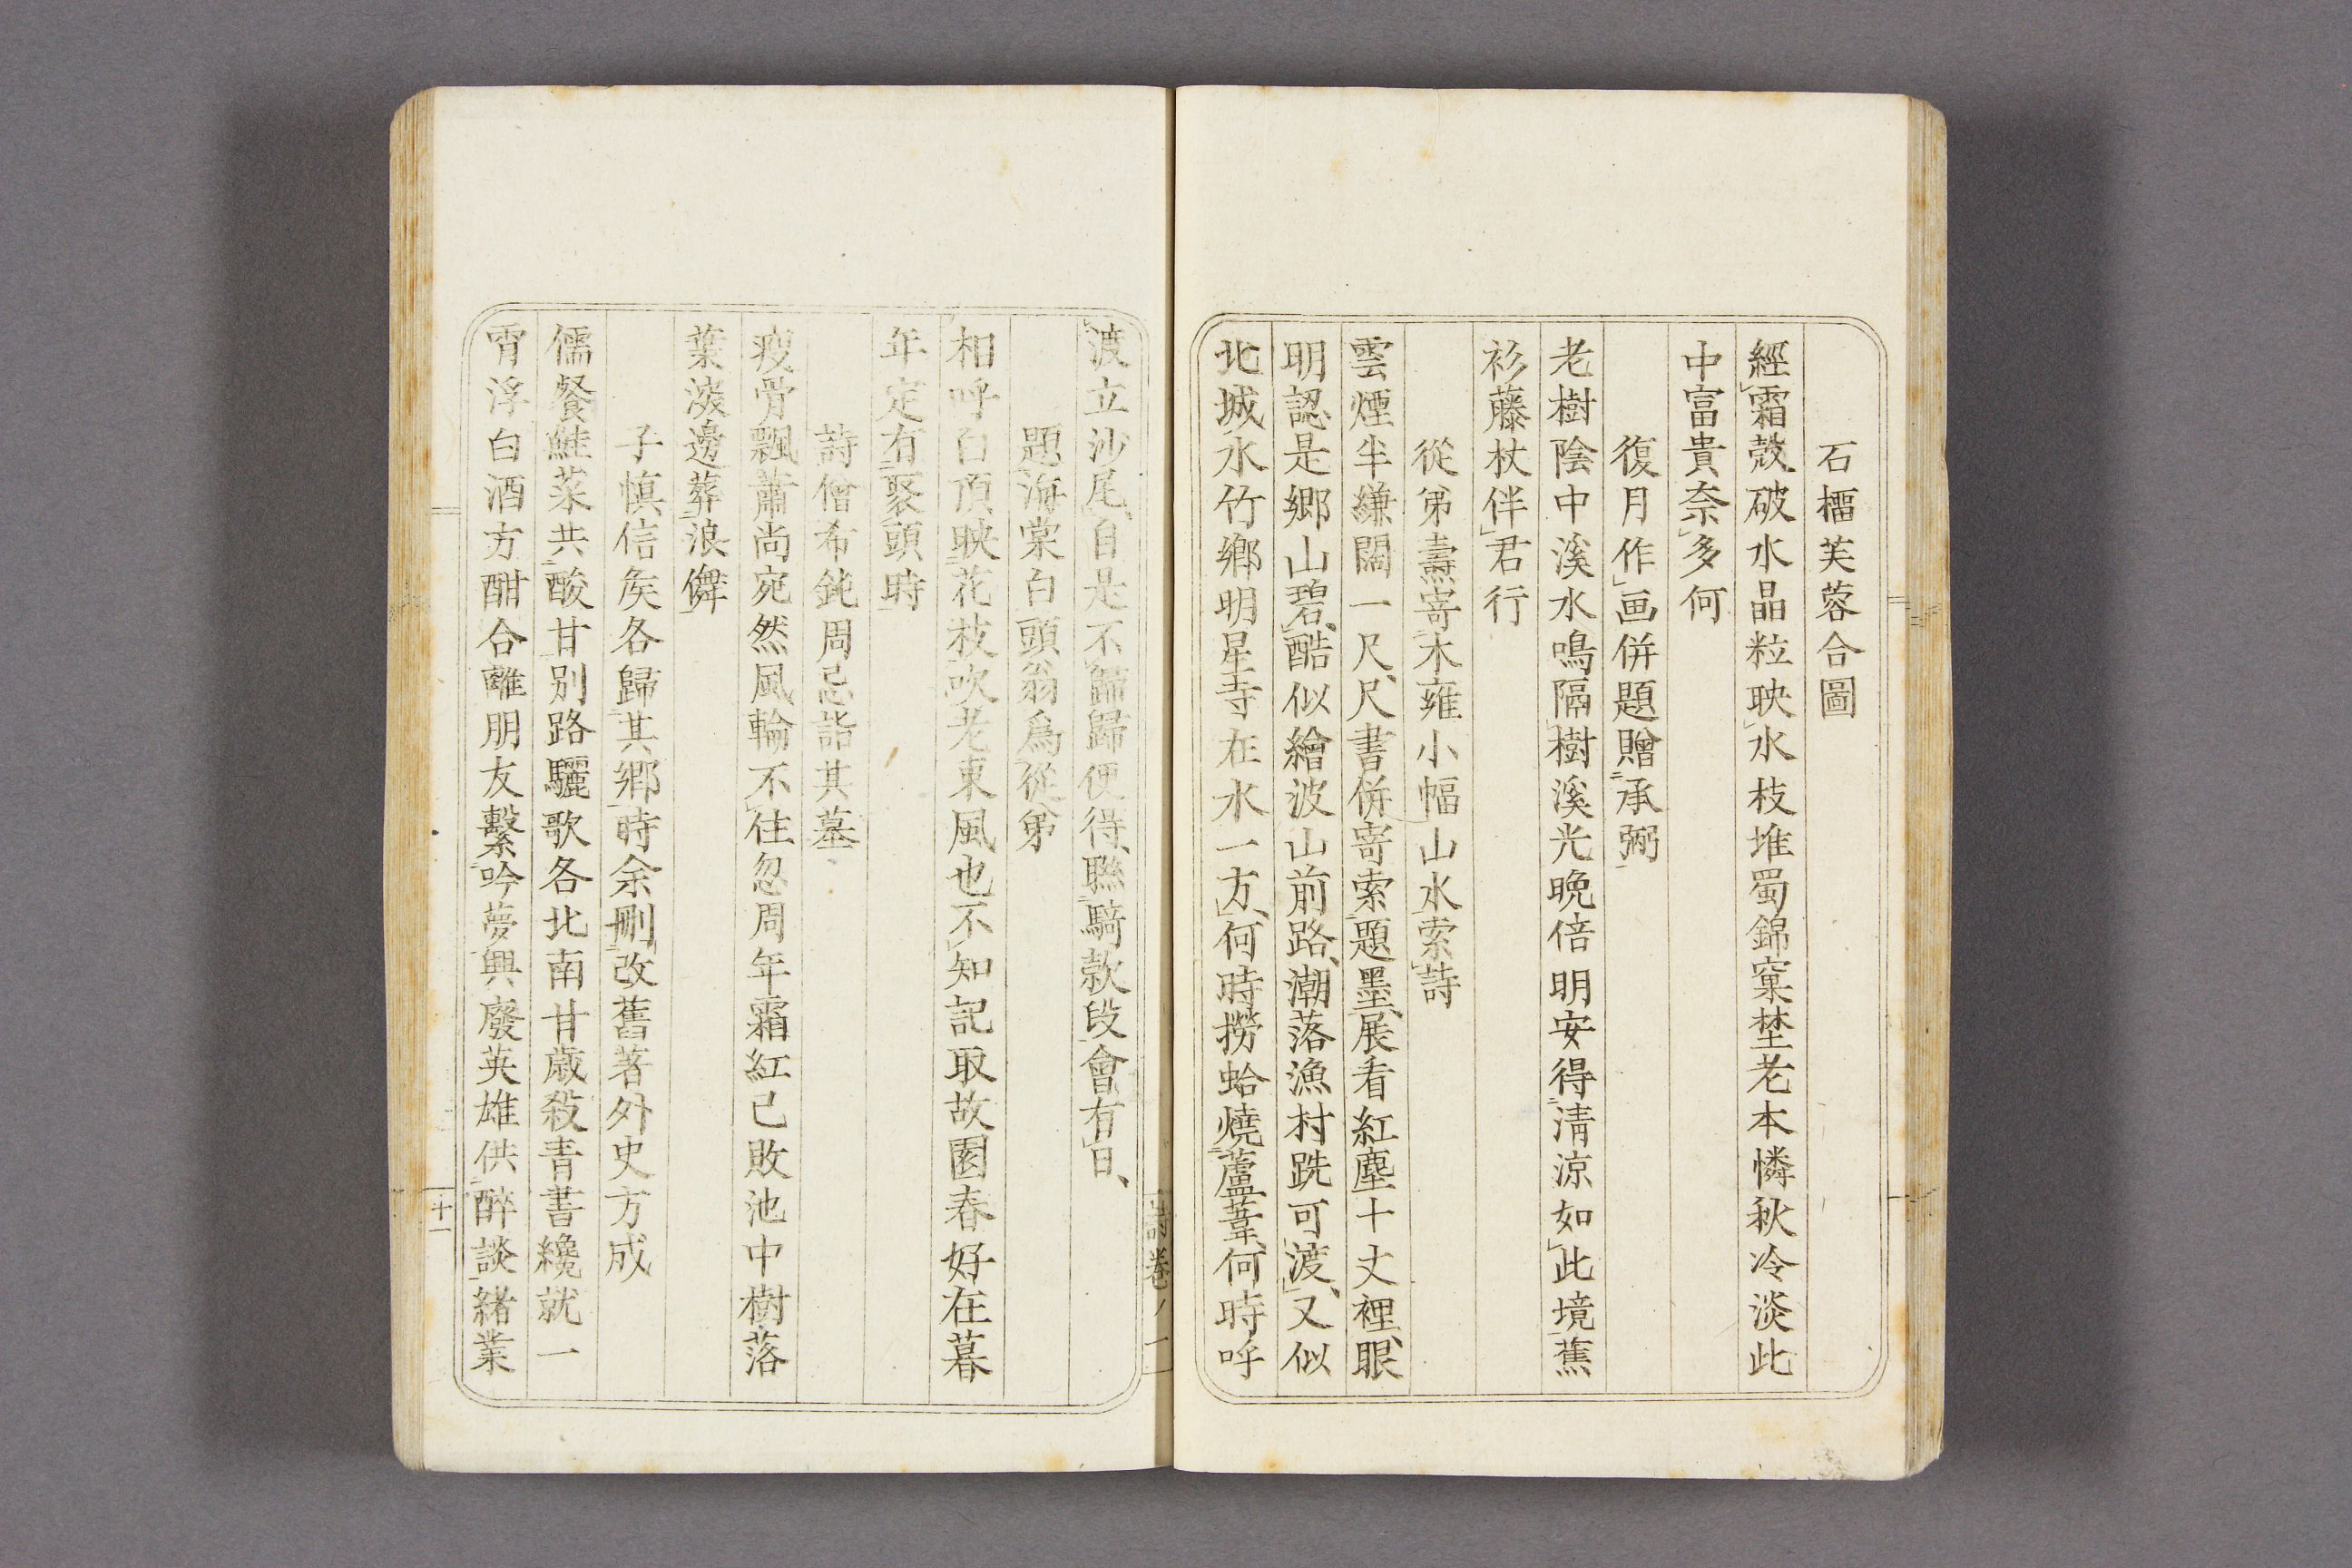 石榴芙蓉合圖
經霜殼破水晶粒映水枝堆蜀錦窠埜老本憐秋冷淡此
中富貴奈多何
復月作画併題贈承弼
老樹陰中溪水鳴隔樹溪光晩倍明安得淸涼如此境蕉
衫藤杖伴君行
從弟燾寄木雍小幅山水索詩
雲煙半縑闊一尺、尺書併寄索題墨、展看紅塵十丈裡、眼
明認是鄉山碧、酷似繪波山前路、潮落漁村跣可渡、又似
北城水竹鄉明星寺在水一方、何時撈蛤燒蘆葦、何時呼
渡立沙尾、自是不歸歸便得、聯騎款段會有日、
題海棠白頭翁爲從弟
相呼白頂映花枝吹老東風也不知記取故園春好在暮
年定有聚頭時
詩僧希鈍周忌詣其墓
瘦骨飄蕭尚宛然風輪不住忽周年霜紅已敗池中樹落
葉深邊葬浪僊
子愼信矦各歸其鄉時余刪改舊著外史方成
儒餐鮭菜共酸甘別路驪歌各北南廿歲殺靑書纔就一
宵浮白酒方酣合離朋友繫吟夢興廢英雄供醉談緒業
詩卷ノ一
十一